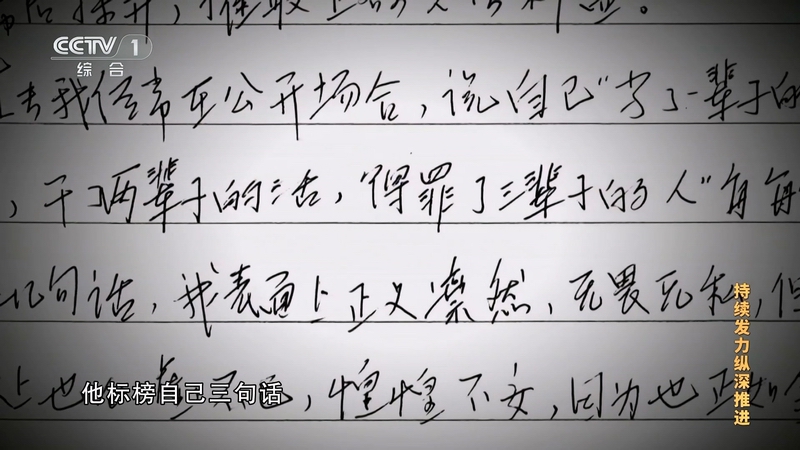 CCTV 1
综合
去我经常在公开场合，说自己“了一辈子的
，干了两辈子的活，得罪了三辈子的人”每每
句话，我表面上正义凛然，无畏无私，但
也，惶惶不安，因为也正如
他标榜自己三句话
持续发力纵深推进